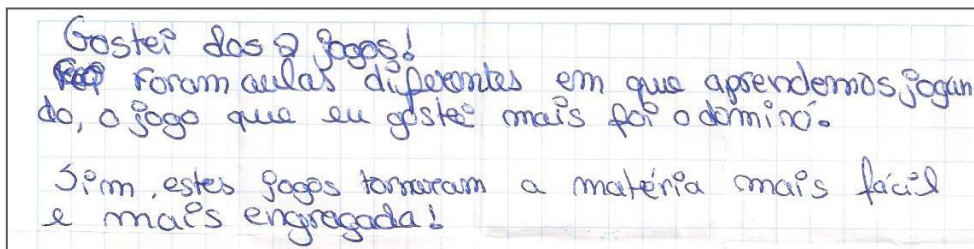 Gostei dos 2 jogos!
Foram aulas diferentes em que aprendemos jogan
do, o jogo que eu gostei mais foi o dominó.
Sim, estes jogos tornaram a matéria mais fácil
e mais engraçada!